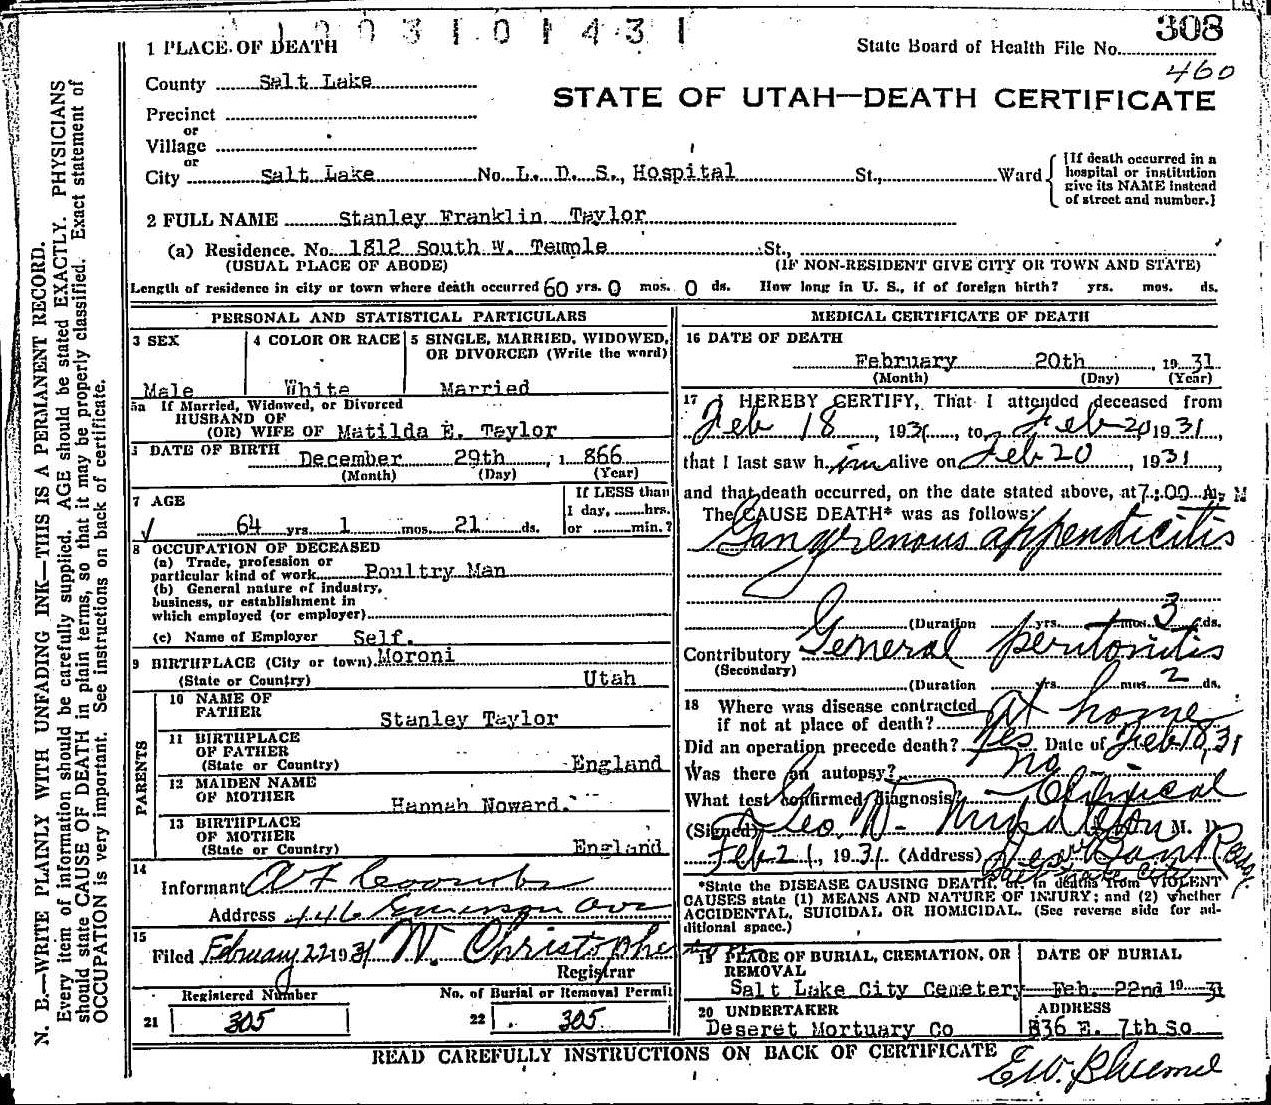 1003101431
308
1 PLACE OF DEATH
State Board of Health File No.
460
County Salt Lake
STATE OF UTAH—DEATH CERTIFICATE
Precinct
or
Village
or
City Salt Lake No. L. D. S., Hospital St., Ward
[If death occurred in a hospital or institution give its NAME instead of street and number.]
2 FULL NAME Stanley Franklin Taylor
(a) Residence. No. 1812 South W. Temple St.,
(USUAL PLACE OF ABODE) (IF NON-RESIDENT GIVE CITY OR TOWN AND STATE)
Length of residence in city or town where death occurred 60 yrs. 0 mos. 0 ds. How long in U. S., if of foreign birth? yrs. mos. ds.
PERSONAL AND STATISTICAL PARTICULARS
3 SEX
Male
4 COLOR OR RACE
White
5 SINGLE, MARRIED, WIDOWED,
OR DIVORCED (Write the word)
Married
5a If Married, Widowed, or Divorced
HUSBAND OF
(OR) WIFE OF Matilda E. Taylor
DATE OF BIRTH
December 29th, 1 866
(Month) (Day) (Year)
7 AGE
64 yrs. 1 mos. 21 ds.
If LESS than
1 day, hrs.
or min.?
8 OCCUPATION OF DECEASED
(a) Trade, profession or
particular kind of work Poultry Man
(b) General nature of industry,
business, or establishment in
which employed (or employer)
(c) Name of Employer Self.
9 BIRTHPLACE (City or town) Moroni
(State or Country) Utah
PARENTS
10 NAME OF
FATHER Stanley Taylor
11 BIRTHPLACE
OF FATHER
(State or Country) England
12 MAIDEN NAME
OF MOTHER Hannah Noward.
13 BIRTHPLACE
OF MOTHER
(State or Country) England
14
Informant A F Coombs
Address 446 Emerson Ave
15
Filed February 22 1931 W. Christopherson
Registrar
Registered Number
21 305
No. of Burial or Removal Permit
22 305
MEDICAL CERTIFICATE OF DEATH
16 DATE OF DEATH
February 20th, 19 31
(Month) (Day) (Year)
17 I HEREBY CERTIFY, That I attended deceased from
Feb 18, 1931, to Feb 20 1931,
that I last saw h im alive on Feb 20, 1931,
and that death occurred, on the date stated above, at 7:00 A. M
The CAUSE DEATH* was as follows:
Gangrenous appendicitis
(Duration yrs. mos. 3 ds.
Contributory General peritonitis
(Secondary)
(Duration yrs. mos. 2 ds.
18 Where was disease contracted
if not at place of death? At home
Did an operation precede death? Yes Date of Feb 18, 31
Was there an autopsy? no
What test confirmed diagnosis? Clinical
(Signed) Geo W. Middleton M. D.
Feb 21, 1931. (Address)
*State the DISEASE CAUSING DEATH, or, in deaths from VIOLENT
CAUSES state (1) MEANS AND NATURE OF INJURY; and (2) whether
ACCIDENTAL, SUICIDAL OR HOMICIDAL. (See reverse side for additional space.)
19 PLACE OF BURIAL, CREMATION, OR
REMOVAL
Salt Lake City Cemetery
DATE OF BURIAL
Feb. 22nd 19 31
20 UNDERTAKER
Deseret Mortuary Co
ADDRESS
836 E. 7th So
READ CAREFULLY INSTRUCTIONS ON BACK OF CERTIFICATE
N. B.—WRITE PLAINLY WITH UNFADING INK—THIS IS A PERMANENT RECORD.
Every item of information should be carefully supplied. AGE should be stated EXACTLY. PHYSICIANS
should state CAUSE OF DEATH in plain terms, so that it may be properly classified. Exact statement of
OCCUPATION is very important. See instructions on back of certificate.